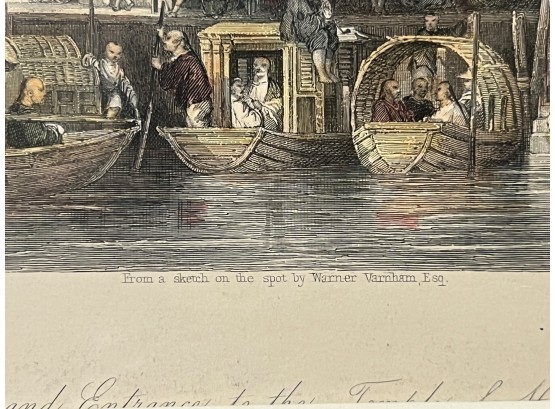 From a sketch on the spot by Warner Varnham, Esq.
and Entrance to the Temple